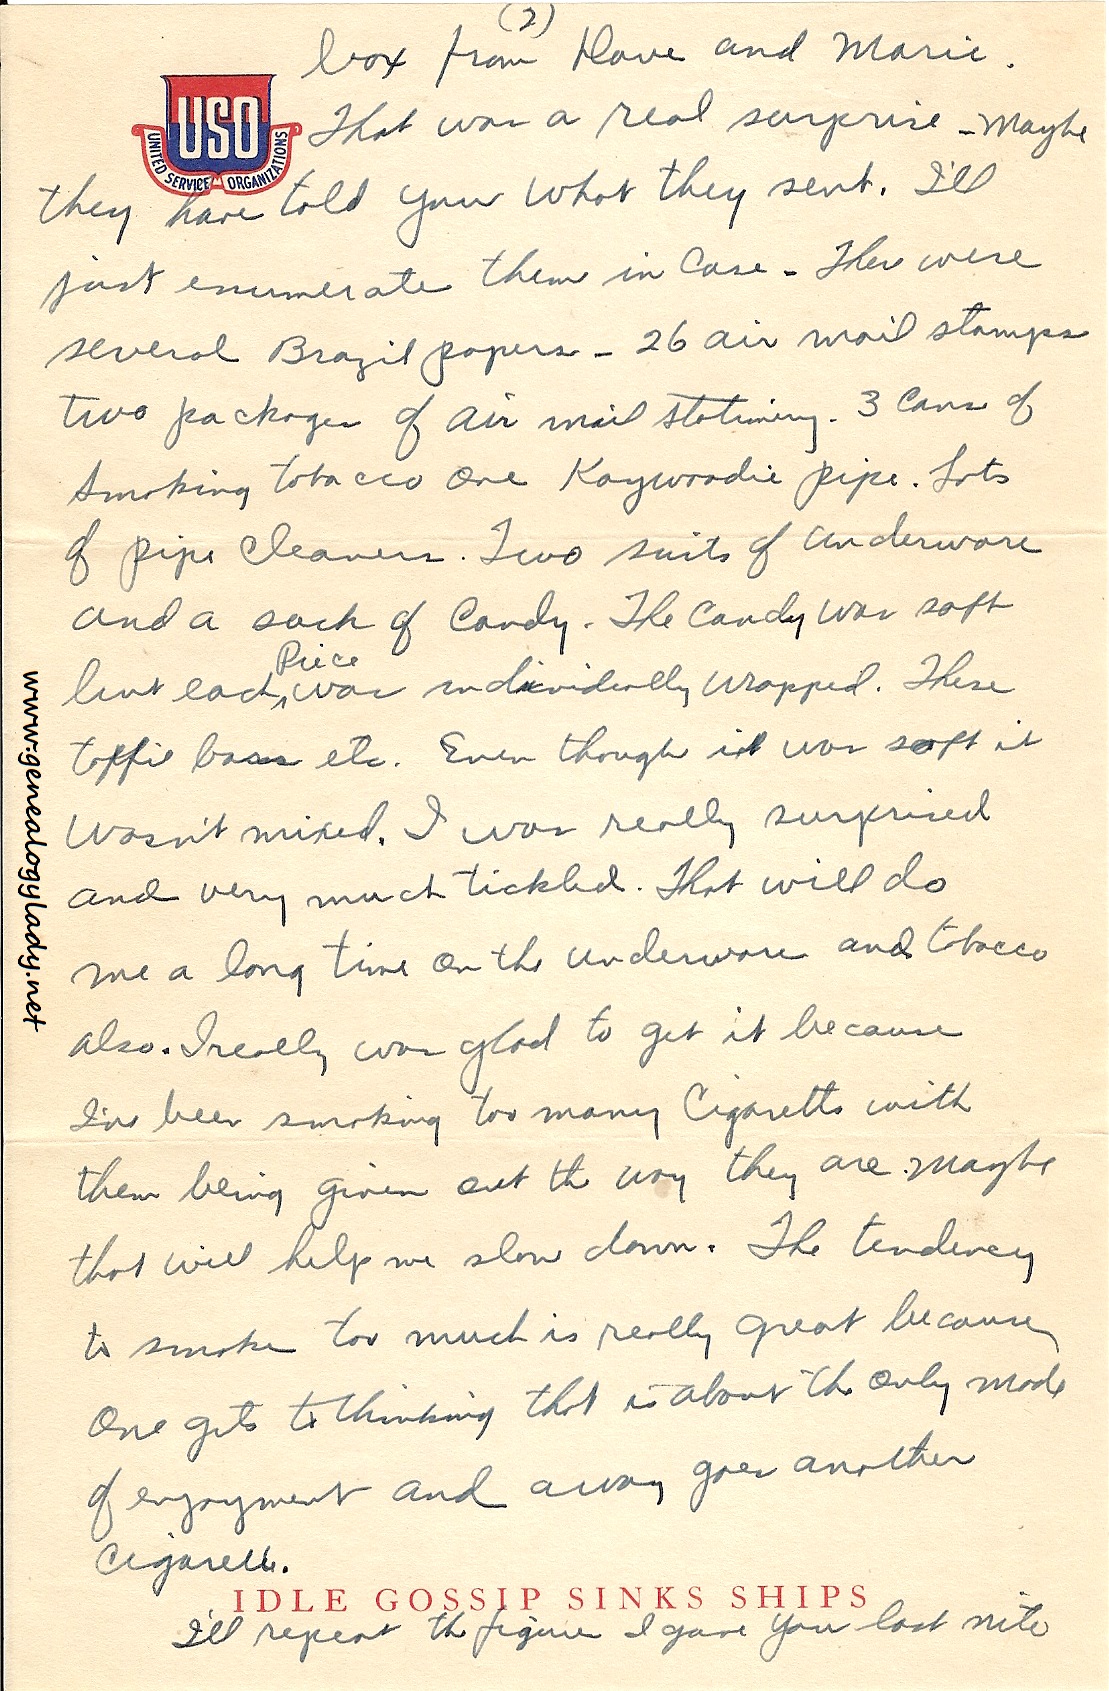 (2)
box from Dave and Marie.
USO
UNITED SERVICE ORGANIZATIONS
That was a real surprise - Maybe
they have told you what they sent. I'll
just enumerate them in case - Ther were
several Brazil papers - 26 air mail stamps
two packages of air mail stationery. 3 cans of
smoking tobacco one Kaywoodie pipe. Lots
of pipe cleaners. Two suits of underware
and a sack of candy. The candy was soft
but each piece was individually wrapped. These
toffie bars etc. Even though it was soft it
wasn't mixed. I was really surprised
and very much tickled. That will do
me a long time on the underware and tobacco
also. I really was glad to get it because
I've been smoking too many cigaretts with
them being given out the way they are. Maybe
that will help me slow down. The tendency
to smoke too much is really great because
one gets to thinking that is about the only mode
of enjoyment and away goes another
cigarette.
IDLE GOSSIP SINKS SHIPS
I'll repeat the figure I gave you last nite
www.genealogylady.net